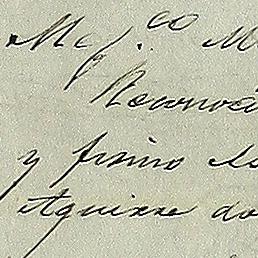 Mej.co M
Reconoci
y firmo el
Aguirre do